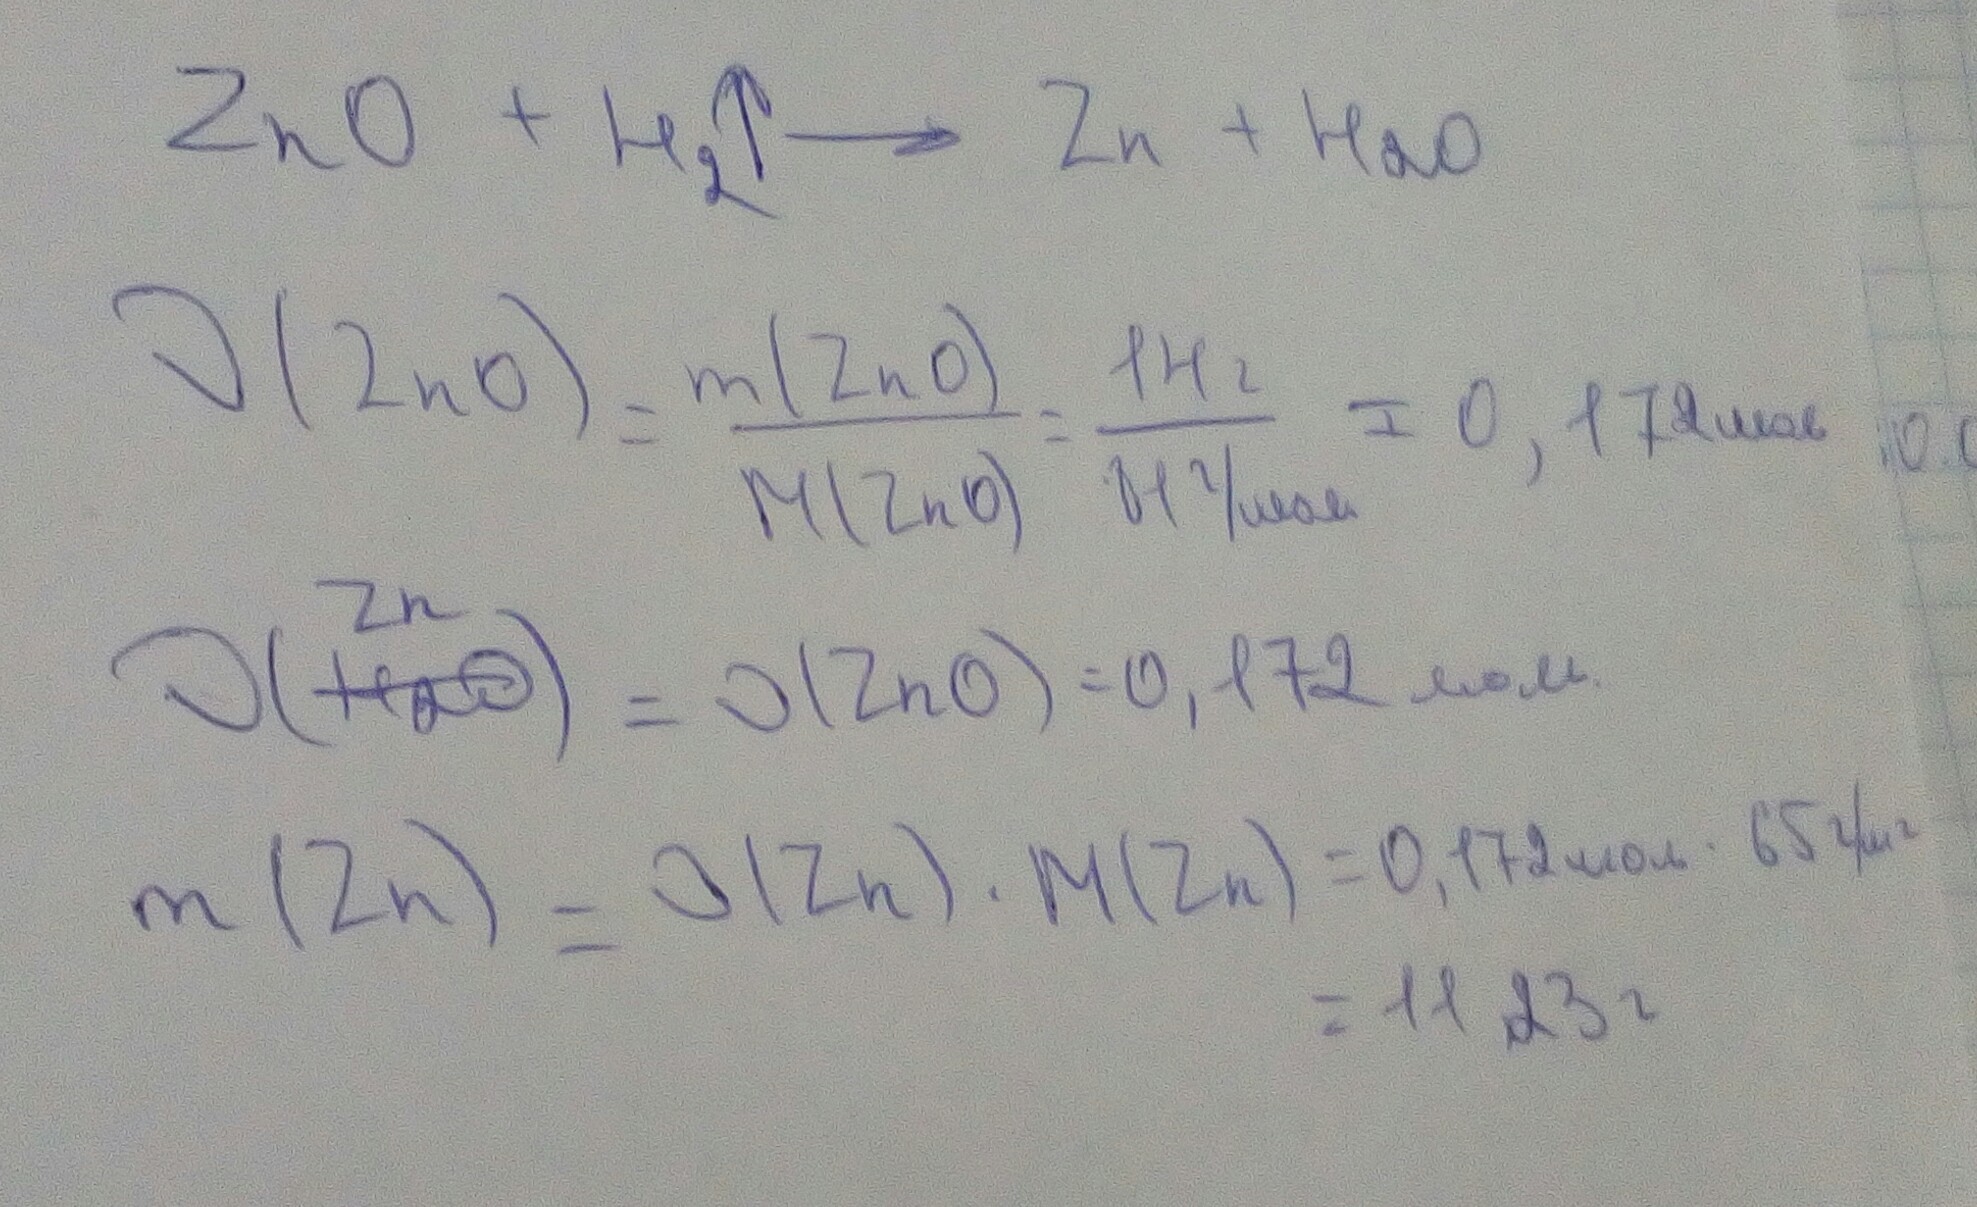 ZnO + H₂↑ → Zn + H₂O
ν(ZnO) = m(ZnO) / M(ZnO) = 14 г / 81 г/моль = 0,172 моль
ν(Zn) = ν(ZnO) = 0,172 моль.
m(Zn) = ν(Zn) · M(Zn) = 0,172 моль · 65
= 11,23 г